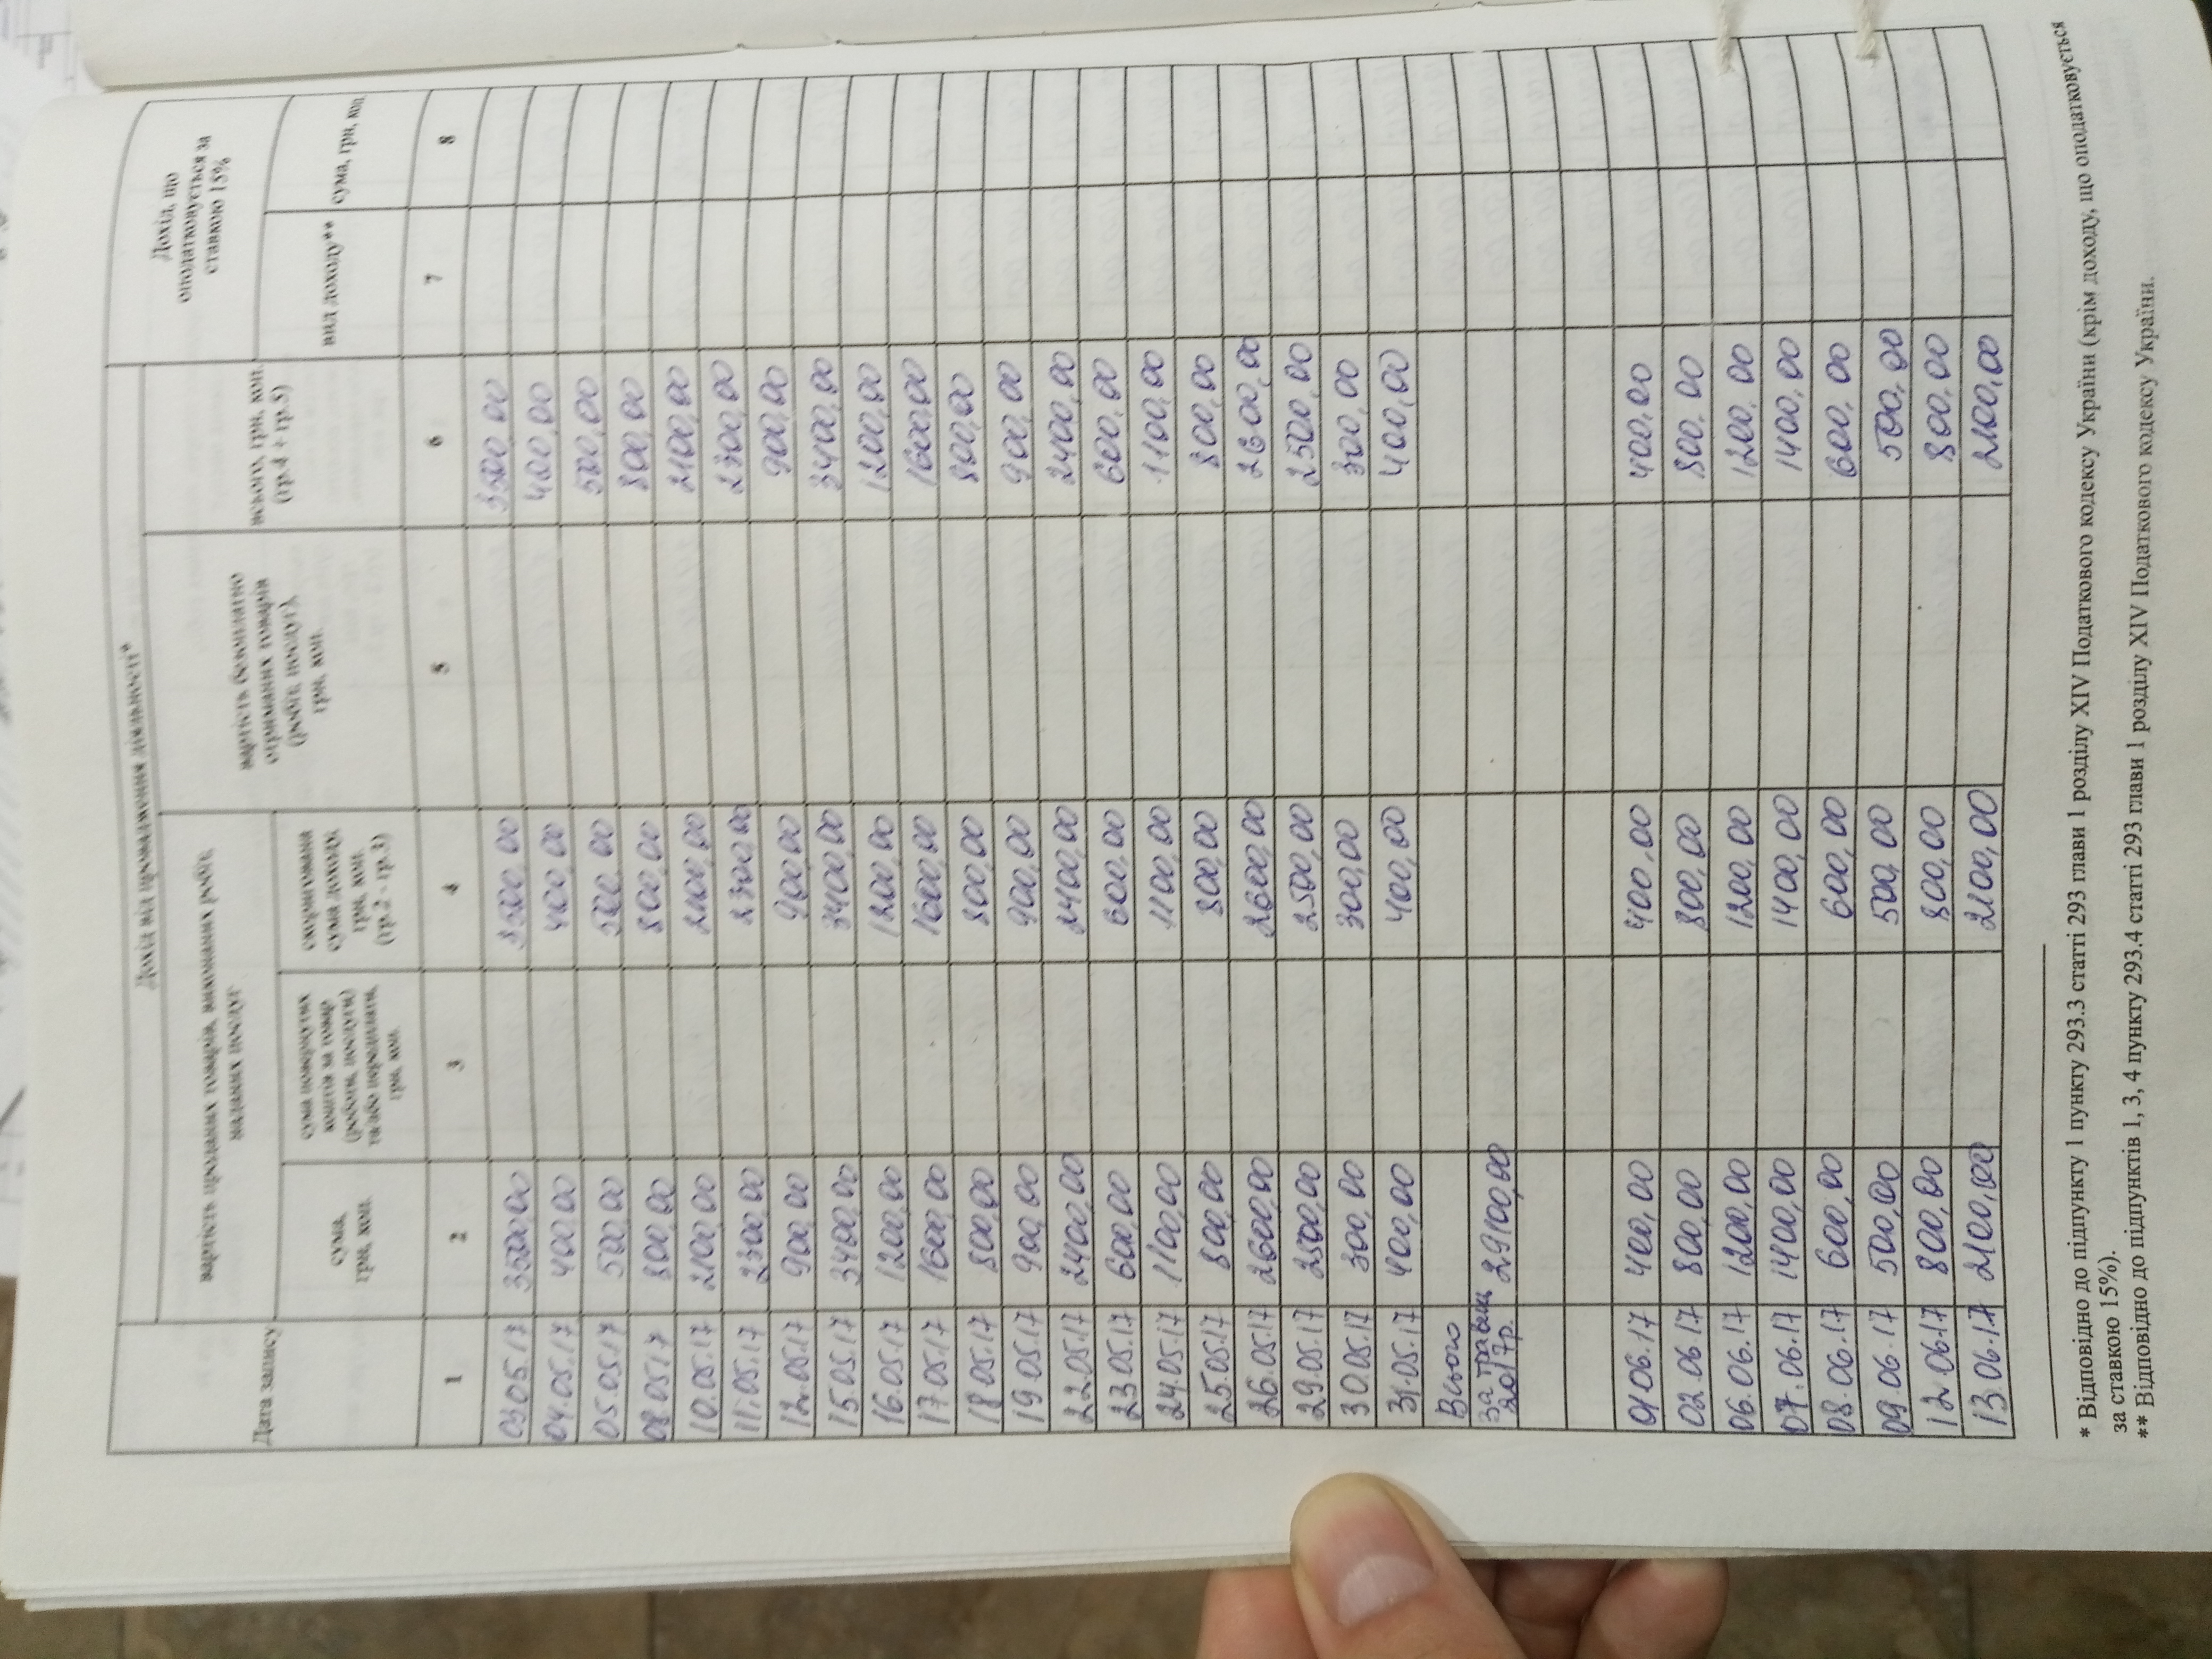 Дата запису
Дохід від провадження діяльності*
Дохід, що
оподатковується за
ставкою 15%
вартість проданих товарів, виконаних робіт,
наданих послуг
вартість безоплатно
отриманих товарів
(робіт, послуг),
грн, коп.
всього, грн, коп.
(гр.4 + гр.5)
вид доходу**
сума, грн, коп.
сума,
грн, коп.
сума повернутих
коштів за товар
(роботи, послуги)
та/або передплати,
грн, коп.
скоригована
сума доходу,
грн, коп.
(гр.2 - гр.3)
1 2 3 4 5 6 7 8
03.05.17 3500,00 3500,00 3500,00
04.05.17 400,00 400,00 400,00
05.05.17 500,00 500,00 500,00
08.05.17 800,00 800,00 800,00
10.05.17 2100,00 2100,00 2100,00
11.05.17 2300,00 2300,00 2300,00
12.05.17 900,00 900,00 900,00
15.05.17 3400,00 3400,00 3400,00
16.05.17 1200,00 1200,00 1200,00
17.05.17 1600,00 1600,00 1600,00
18.05.17 800,00 800,00 800,00
19.05.17 900,00 900,00 900,00
22.05.17 2400,00 2400,00 2400,00
23.05.17 600,00 600,00 600,00
24.05.17 1100,00 1100,00 1100,00
25.05.17 800,00 800,00 800,00
26.05.17 2600,00 2600,00 2600,00
29.05.17 2500,00 2500,00 2500,00
30.05.17 300,00 300,00 300,00
31.05.17 400,00 400,00 400,00
Всього
за травень 29100,00
2017р.
01.06.17 400,00 400,00 400,00
02.06.17 800,00 800,00 800,00
06.06.17 1200,00 1200,00 1200,00
07.06.17 1400,00 1400,00 1400,00
08.06.17 600,00 600,00 600,00
09.06.17 500,00 500,00 500,00
12.06.17 800,00 800,00 800,00
13.06.17 2100,00 2100,00 2100,00
* Відповідно до підпункту 1 пункту 293.3 статті 293 глави 1 розділу XIV Податкового кодексу України (крім доходу, що оподатковується
за ставкою 15%).
** Відповідно до підпунктів 1, 3, 4 пункту 293.4 статті 293 глави 1 розділу XIV Податкового кодексу України.